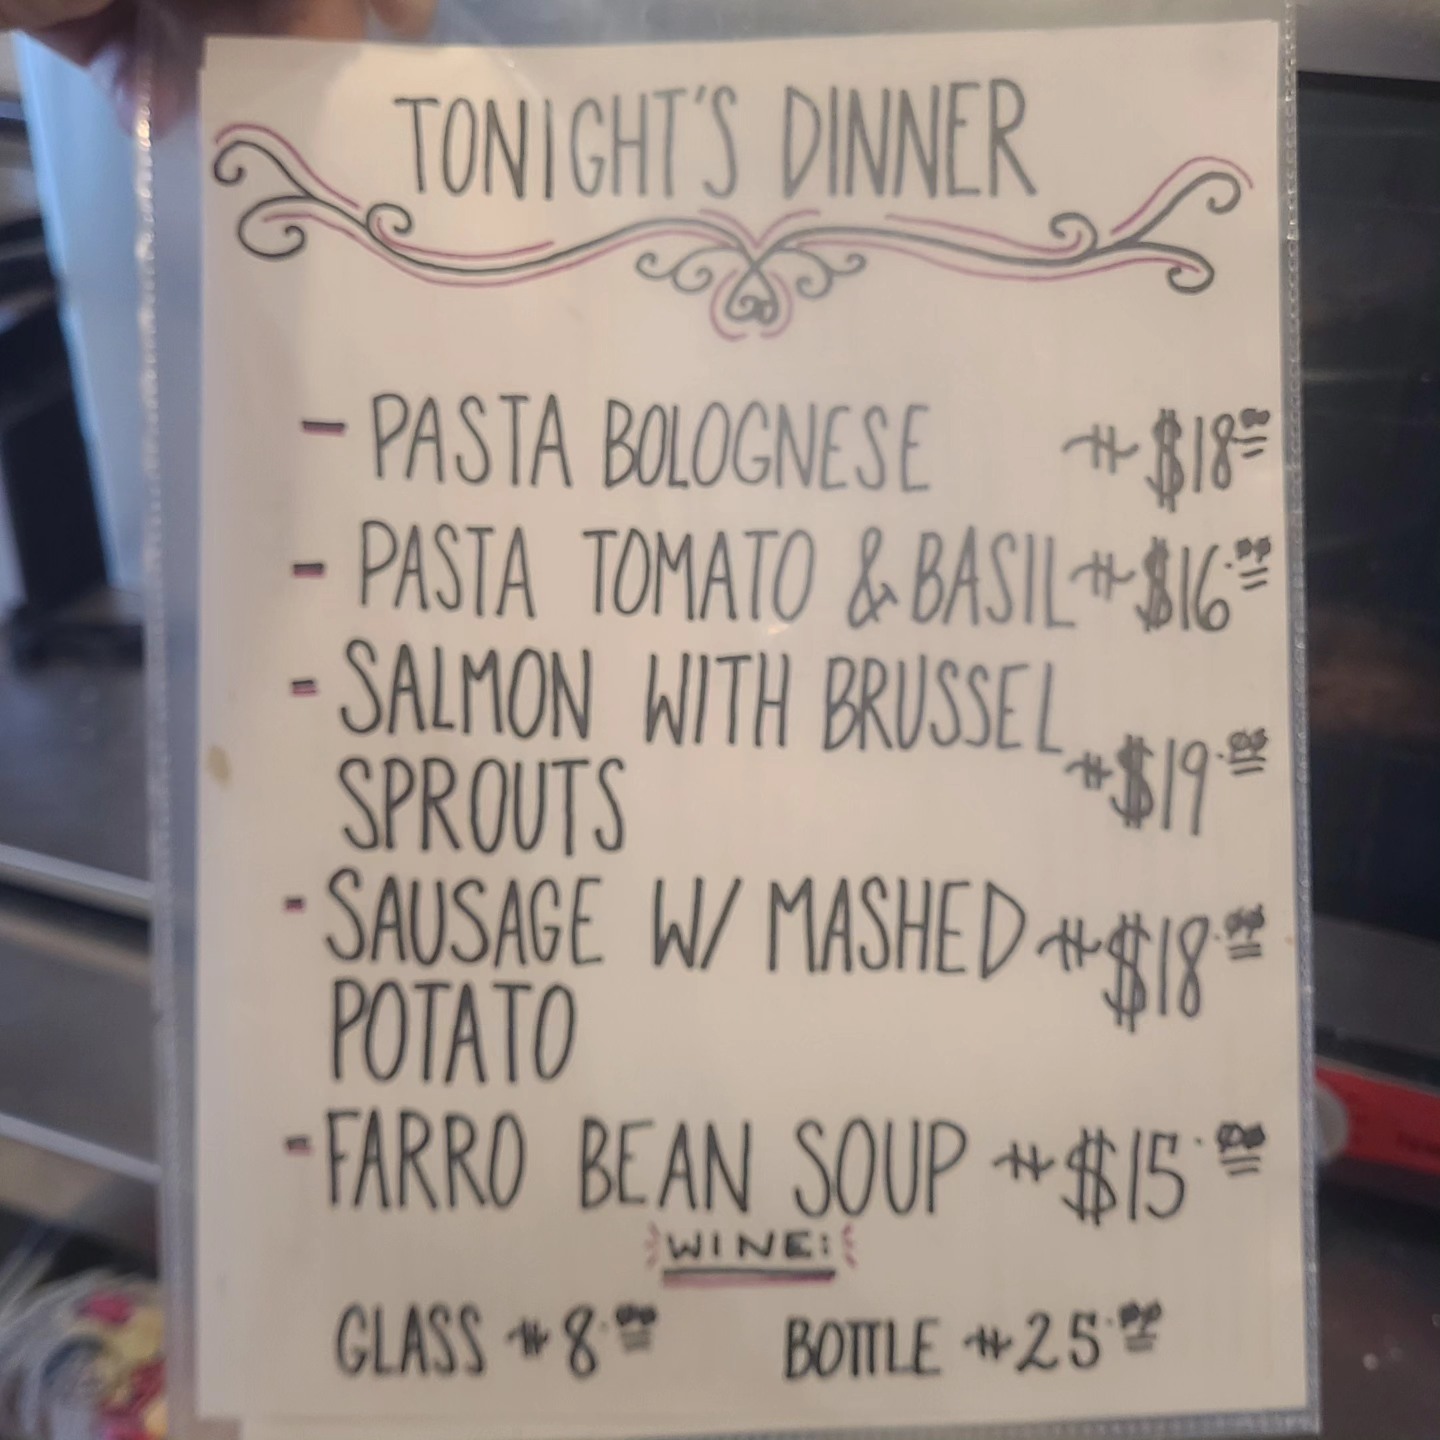 TONIGHT'S DINNER
- PASTA BOLOGNESE $18.00
- PASTA TOMATO & BASIL $16.00
- SALMON WITH BRUSSEL
SPROUTS $19.00
- SAUSAGE W/ MASHED $18.00
POTATO
- FARRO BEAN SOUP $15.00
WINE:
GLASS 8.00 BOTTLE 25.00